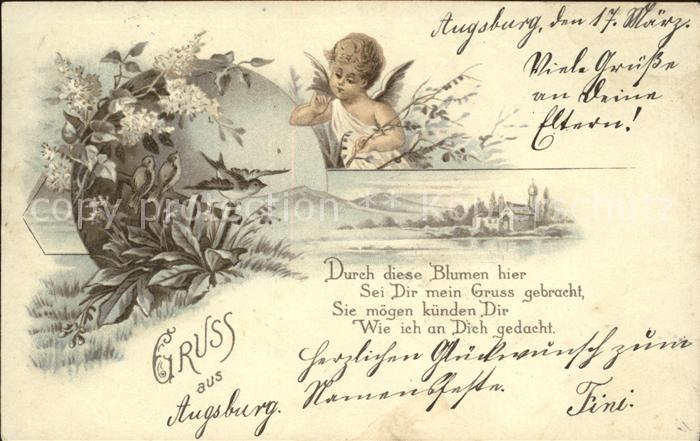 Augsburg, den 17. März.
Viele Grüße
an Deine
Eltern!
copy protection ** Kopierschutz
Durch diese Blumen hier
Sei Dir mein Gruss gebracht,
Sie mögen künden Dir
Wie ich an Dich gedacht.
Gruss
aus
Augsburg.
Herzlichen Glückwunsch zum
Namensfeste.
Fini.